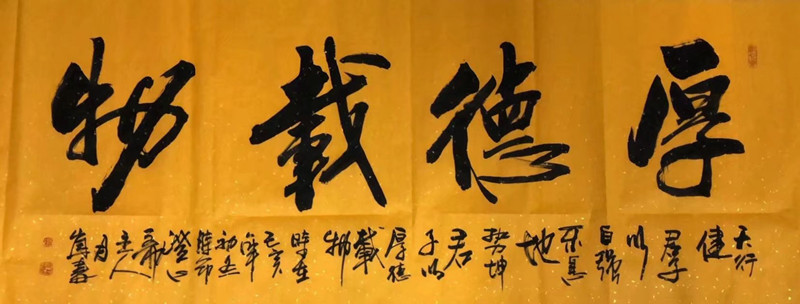 厚德載物
天行
健
君子
以
自强
不息
地
勢坤
君
子以
厚德
載
物
時在
己亥
年
初冬
時節
主人